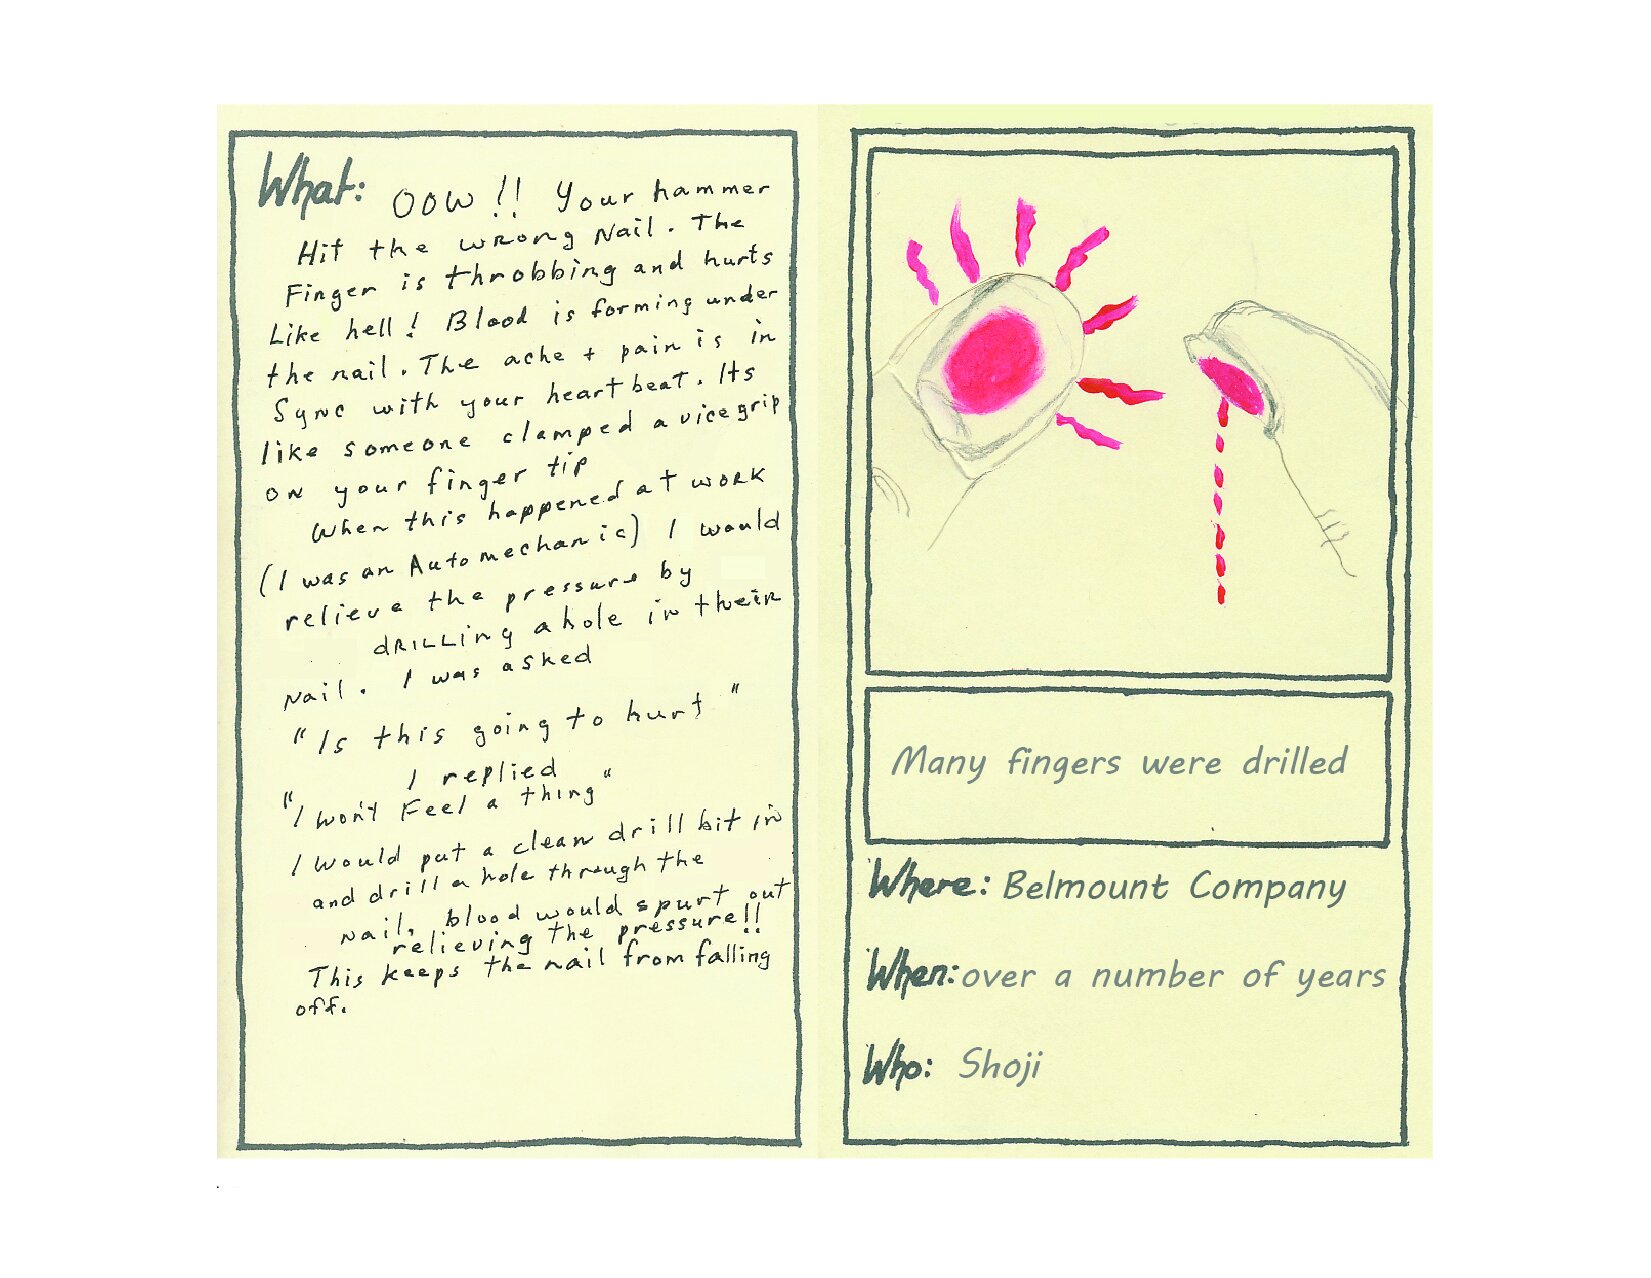 What: OOW !! Your hammer
Hit the wrong Nail. The
Finger is throbbing and hurts
Like hell! Blood is forming under
the nail. The ache + pain is in
Sync with your heart beat. Its
like someone clamped a vice grip
on your finger tip
When this happened at work
(I was an Automechanic) I would
relieve the pressure by
dRILLing a hole in their
Nail. I was asked
"Is this going to hurt"
I replied
"I won't Feel a thing"
I would put a clean drill bit in
and drill a hole through the
Nail, blood would spurt out
relieving the pressure!!
This keeps the nail from falling
off.
Many fingers were drilled
Where: Belmount Company
When: over a number of years
Who: Shoji